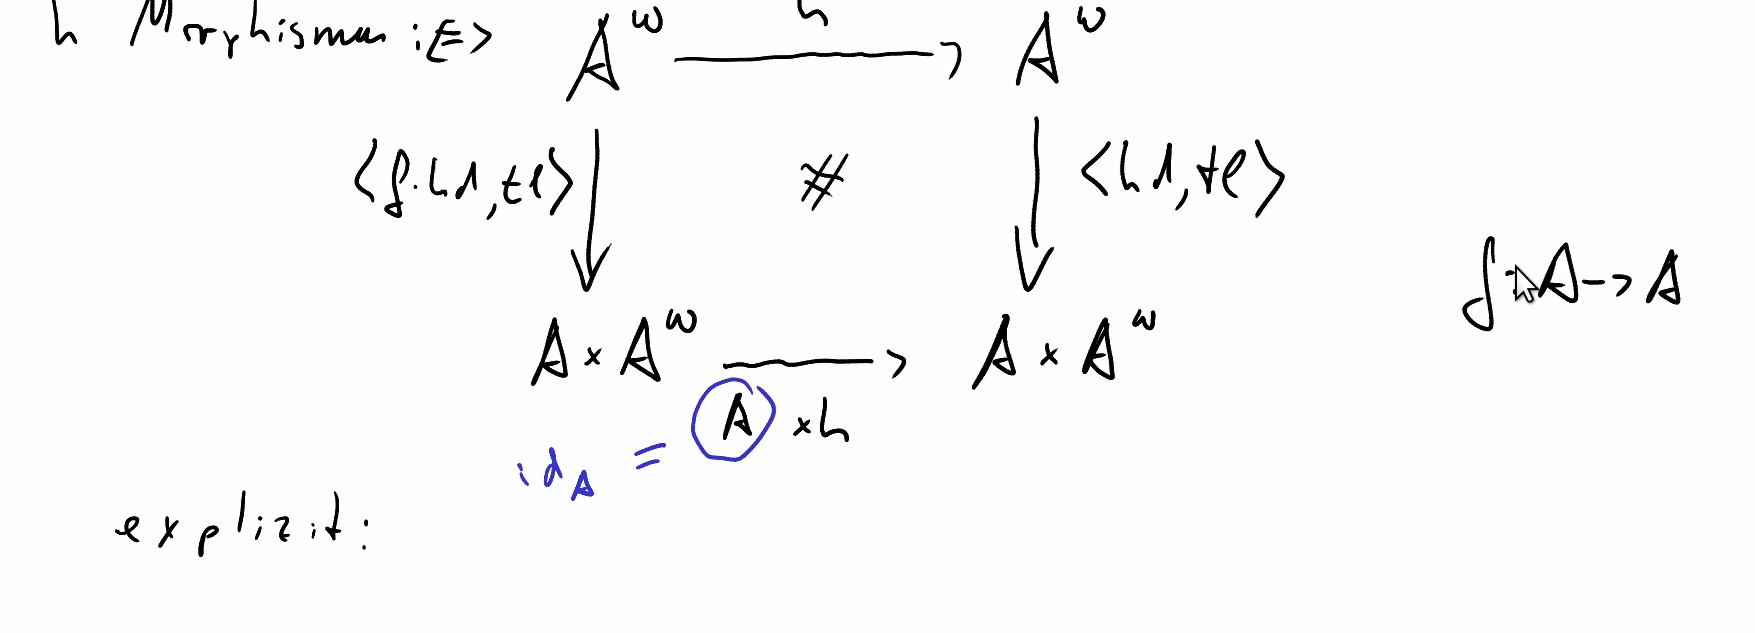 h Morphismus :<=> A^ω h A^ω
<f·hd, tl> # <hd, tl>
f : A -> A
A × A^ω -> A × A^ω
A × h
id_A =
explizit: